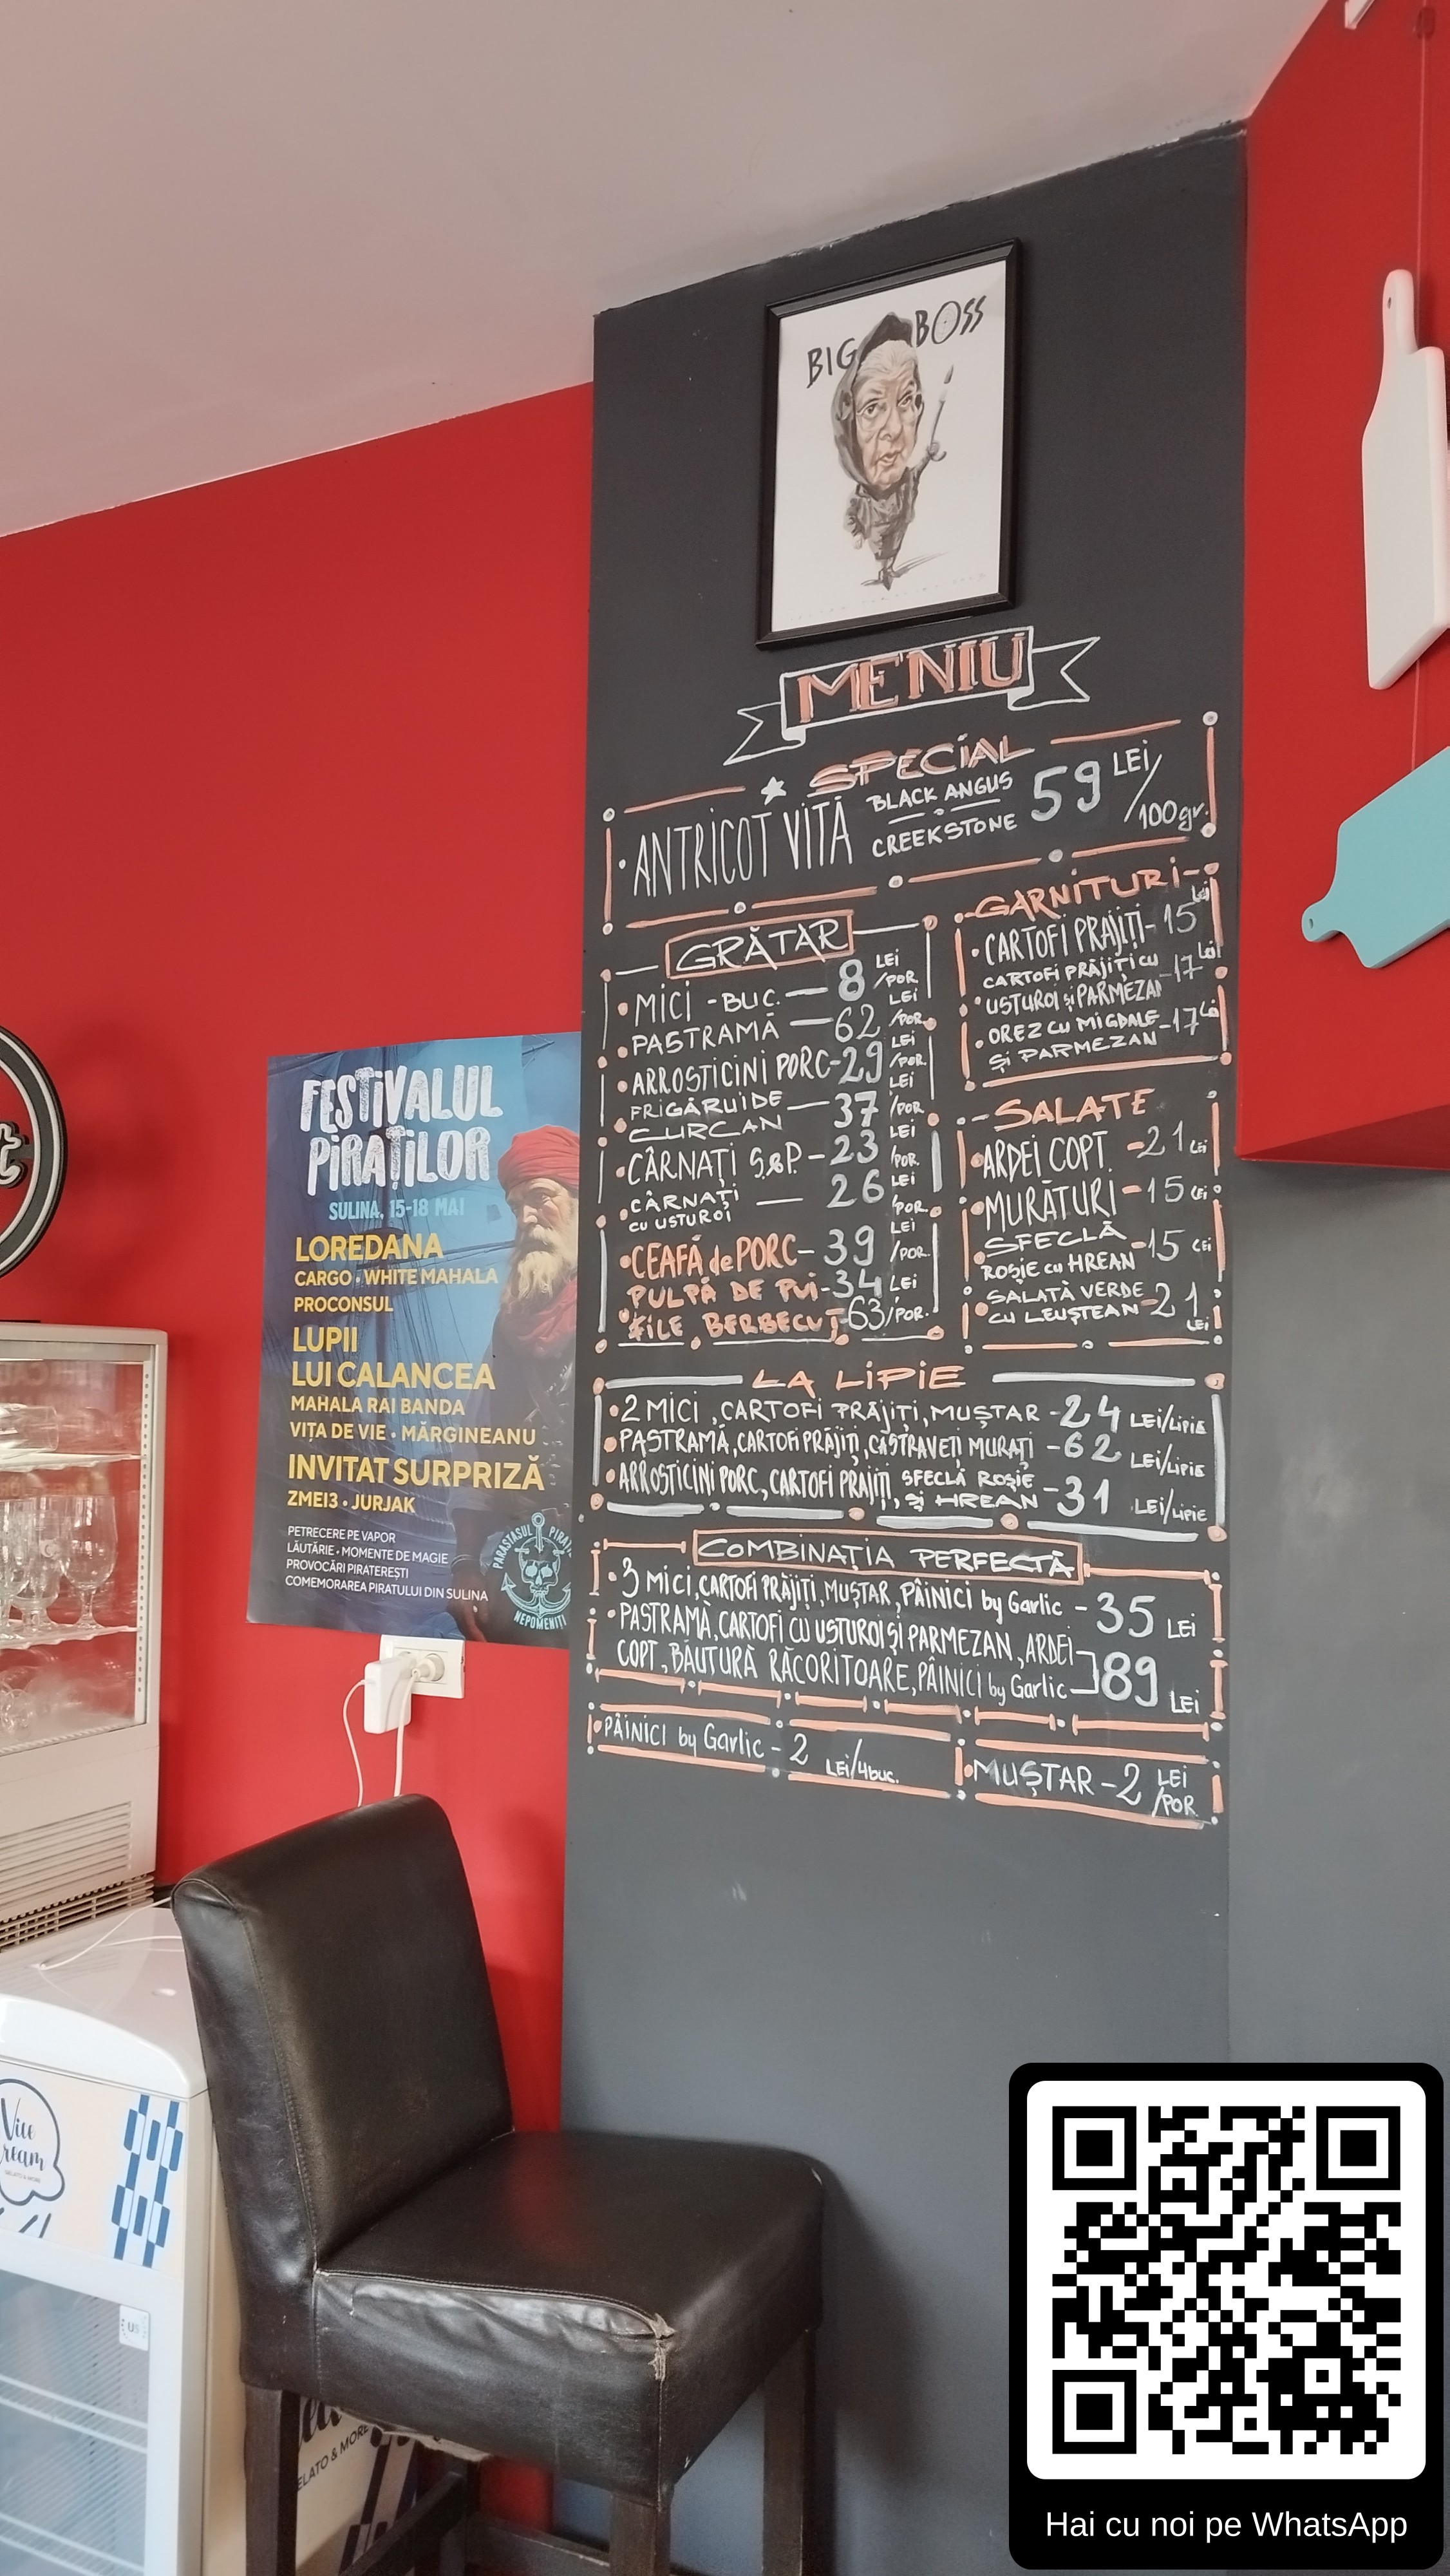 BIG BOSS
MENIU
SPECIAL
ANTRICOT VITĂ BLACK ANGUS CREEKSTONE 59 LEI/100gr.
GRĂTAR
MICI - BUC. — 8 LEI/POR
PASTRAMĂ — 62 LEI/POR.
ARROSTICINI PORC - 29 LEI/POR.
FRIGĂRUI DE CURCAN — 37 LEI/POR.
CÂRNAȚI S&P. - 23 LEI/POR.
CÂRNAȚI CU USTUROI — 26 LEI/POR.
CEAFĂ de PORC - 39 LEI/POR.
PULPĂ DE PUI - 34 LEI
FILE BERBECUȚ - 63 /POR.
GARNITURI
CARTOFI PRĂJIȚI - 15 Lei
CARTOFI PRĂJIȚI CU
USTUROI și PARMEZAN - 17 Lei
OREZ CU MIGDALE
ȘI PARMEZAN - 17 Lei
SALATE
ARDEI COPT. - 21 LEI
MURĂTURI - 15 LEI
SFECLĂ
ROȘIE cu HREAN - 15 LEI
SALATĂ VERDE
CU LEUȘTEAN - 21 LEI
LA LIPIE
2 MICI, CARTOFI PRĂJIȚI, MUȘTAR - 24 LEI/LIPIE
PASTRAMĂ, CARTOFI PRĂJIȚI, CASTRAVEȚI MURAȚI - 62 LEI/LIPIE
ARROSTICINI PORC, CARTOFI PRĂJIȚI, SFECLĂ ROȘIE ȘI HREAN - 31 LEI/LIPIE
COMBINAȚIA PERFECTĂ
3 MICI, CARTOFI PRĂJIȚI, MUȘTAR, PÂINICI by Garlic - 35 LEI
PASTRAMĂ, CARTOFI CU USTUROI ȘI PARMEZAN, ARDEI
COPT, BĂUTURĂ RĂCORITOARE, PÂINICI by Garlic 89 LEI
PÂINICI by Garlic - 2 LEI/4buc.
MUȘTAR - 2 LEI/POR
FESTIVALUL
PIRAȚILOR
SULINA, 15-18 MAI
LOREDANA
CARGO • WHITE MAHALA
PROCONSUL
LUPII
LUI CALANCEA
MAHALA RAI BANDA
VIȚA DE VIE • MĂRGINEANU
INVITAT SURPRIZĂ
ZMEI3 • JURJAK
PETRECERE PE VAPOR
LĂUTĂRIE • MOMENTE DE MAGIE
PROVOCĂRI PIRATEREȘTI
COMEMORAREA PIRATULUI DIN SULINA
PARASTASUL
NEPOMENIȚI
Vice
ream
ELATO & MORE
Hai cu noi pe WhatsApp